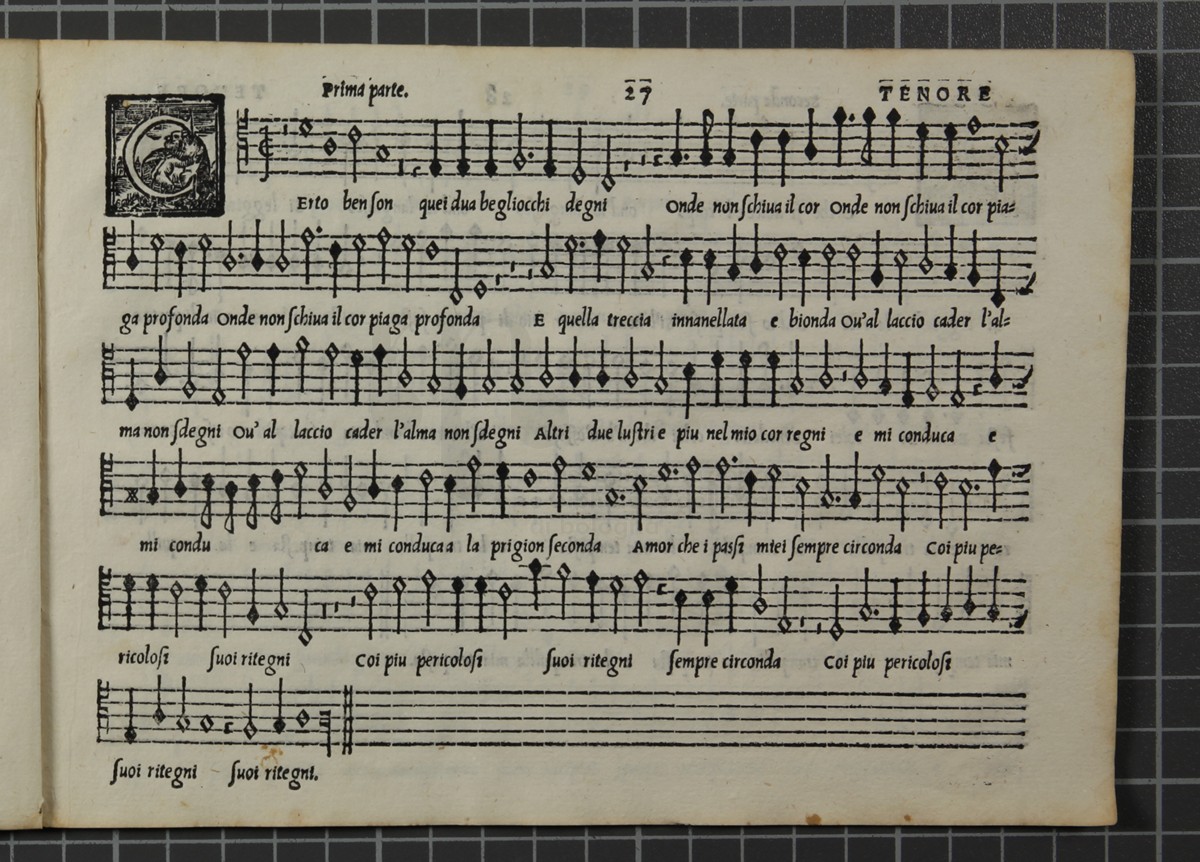 Prima parte. 27 TENORE
CErto ben son quei dua begliocchi degni Onde non schiua il cor Onde non schiua il cor pia=
ga profonda Onde non schiua il cor piaga profonda E quella treccia innanellata e bionda Ou'al laccio cader l'al=
ma non sdegni Ou' al laccio cader l'alma non sdegni Altri due lustri e piu nel mio cor regni e mi conduca e
mi condu ca e mi conduca a la prigion seconda Amor che i passi miei sempre circonda Coi piu pe=
ricolosi suoi ritegni Coi piu pericolosi suoi ritegni sempre circonda Coi piu pericolosi
suoi ritegni suoi ritegni.